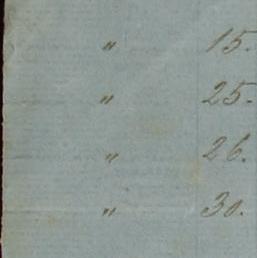 " 15.
" 25.
" 26.
" 30.